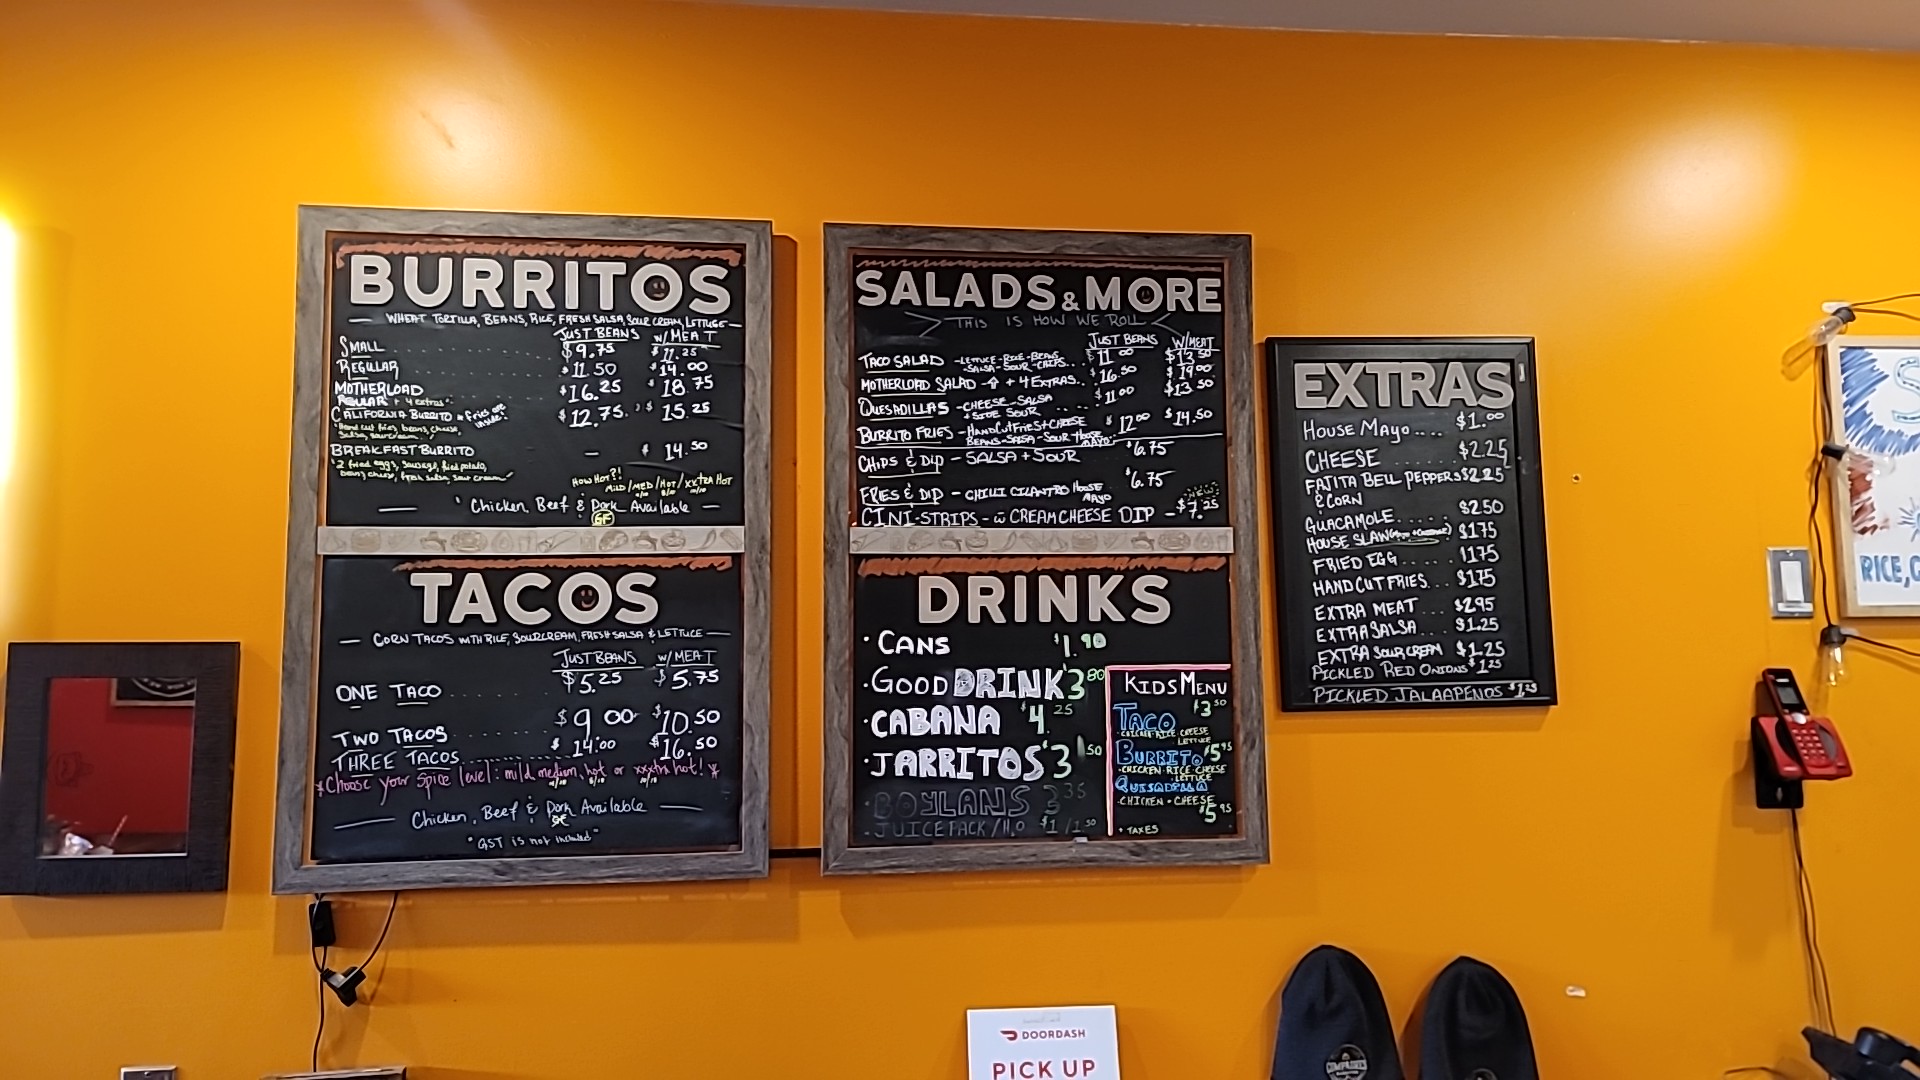 BURRITOS
WHEAT TORTILLA, BEANS, RICE, FRESH SALSA, SOUR CREAM, LETTUCE
JUST BEANS W/MEAT
SMALL $9.75 $11.25
REGULAR $11.50 $14.00
MOTHERLOAD $16.25 $18.75
REGULAR + 4 extras
CALIFORNIA BURRITO * fries are inside! $12.75 $15.25
Hand cut fries, beans, cheese,
salsa, sour cream
BREAKFAST BURRITO — $14.50
2 fried eggs, sausage, fried potato,
beans, cheese, fresh salsa, sour cream
HOW HOT?!
MILD/MED/HOT/XXTRA HOT
Chicken, Beef & Pork Available
GF
TACOS
CORN TACOS WITH RICE, SOURCREAM, FRESH SALSA & LETTUCE
JUST BEANS W/MEAT
ONE TACO $5.25 $5.75
TWO TACOS $9.00 $10.50
THREE TACOS $14.00 $16.50
*Choose your spice level: mild medium, hot or xxxtra hot! *
Chicken, Beef & Pork Available
"GST is not included"
SALADS & MORE
THIS IS HOW WE ROLL
JUST BEANS W/MEAT
TACO SALAD - LETTUCE-RICE-BEANS $11.00 $13.50
-SALSA-SOUR-CHIPS..
MOTHERLOAD SALAD - + 4 EXTRAS.. $16.50 $19.00
QUESADILLAS - CHEESE-SALSA $11.00 $13.50
+ SIDE SOUR
BURRITO FRIES - HAND CUT FRIES + CHEESE $12.00 $14.50
BEANS-SALSA-SOUR HOUSE MAYO
CHIPS & DIP - SALSA + SOUR $6.75
FRIES & DIP - CHILLI CILANTRO HOUSE MAYO $6.75
NEW
CINI-STRIPS - w CREAM CHEESE DIP - $7.25
DRINKS
· CANS $1.90
· GOOD DRINK $3.80
· CABANA $4.25
· JARRITOS $3.50
· BOYLANS 3.35
· JUICE PACK/H2O $1/1.50
KIDS MENU
TACO $3.50
· CHICKEN · RICE · CHEESE
LETTUCE
BURRITO $5.95
· CHICKEN · RICE · CHEESE
LETTUCE
QUISADILLA
· CHICKEN + CHEESE
$5.95
+ TAXES
EXTRAS
HOUSE MAYO.... $1.00
CHEESE $2.25
FAJITA BELL PEPPERS $2.25
& CORN
GUACAMOLE..... $2.50
HOUSE SLAW $1.75
FRIED EGG... $1.75
HANDCUT FRIES... $1.75
EXTRA MEAT ... $2.95
EXTRA SALSA.... $1.25
EXTRA SOUR CREAM $1.25
PICKLED RED ONIONS $1.25
PICKLED JALAAPENOS $1.25
RICE,
DOORDASH
PICK UP